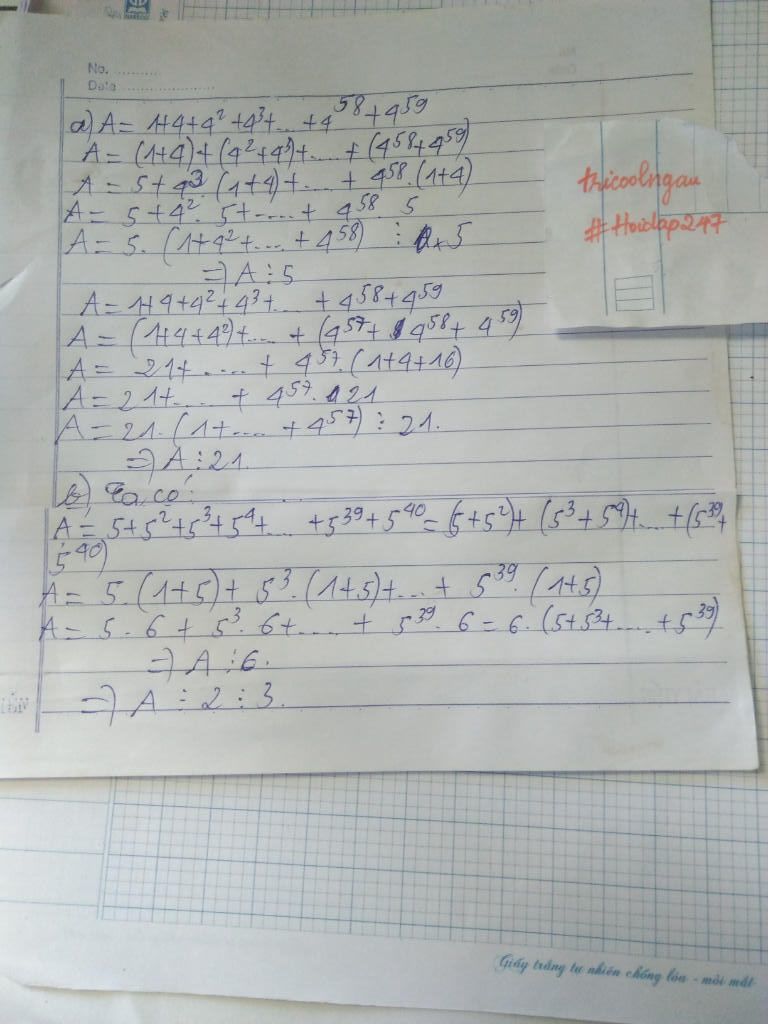 No. ............
Date ........................
a) A = 1+4+4²+4³+...+4⁵⁸+4⁵⁹
A = (1+4)+(4²+4³)+....+(4⁵⁸+4⁵⁹)
A = 5+4³.(1+4)+....+4⁵⁸.(1+4)
A = 5+4².5+.....+4⁵⁸.5
A = 5.(1+4²+....+4⁵⁸) ⋮ 5
=> A ⋮ 5
A = 1+4+4²+4³+...+4⁵⁸+4⁵⁹
A = (1+4+4²)+....+(4⁵⁷+4⁵⁸+4⁵⁹)
A = 21+.....+4⁵⁷.(1+4+16)
A = 21+....+4⁵⁷.21
A = 21.(1+....+4⁵⁷) ⋮ 21.
=> A ⋮ 21.
b) Ta có:
A = 5+5²+5³+5⁴+...+5³⁹+5⁴⁰ = (5+5²)+(5³+5⁴)+....+(5³⁹+
5⁴⁰)
A = 5.(1+5)+5³.(1+5)+...+5³⁹.(1+5)
A = 5.6+5³.6+.....+5³⁹.6 = 6.(5+5³+....+5³⁹)
=> A ⋮ 6.
=> A ⋮ 2 ⋮ 3.
tricoolngau
#Hoidap247
Giấy trắng tự nhiên chống lóa - mỏi mắt